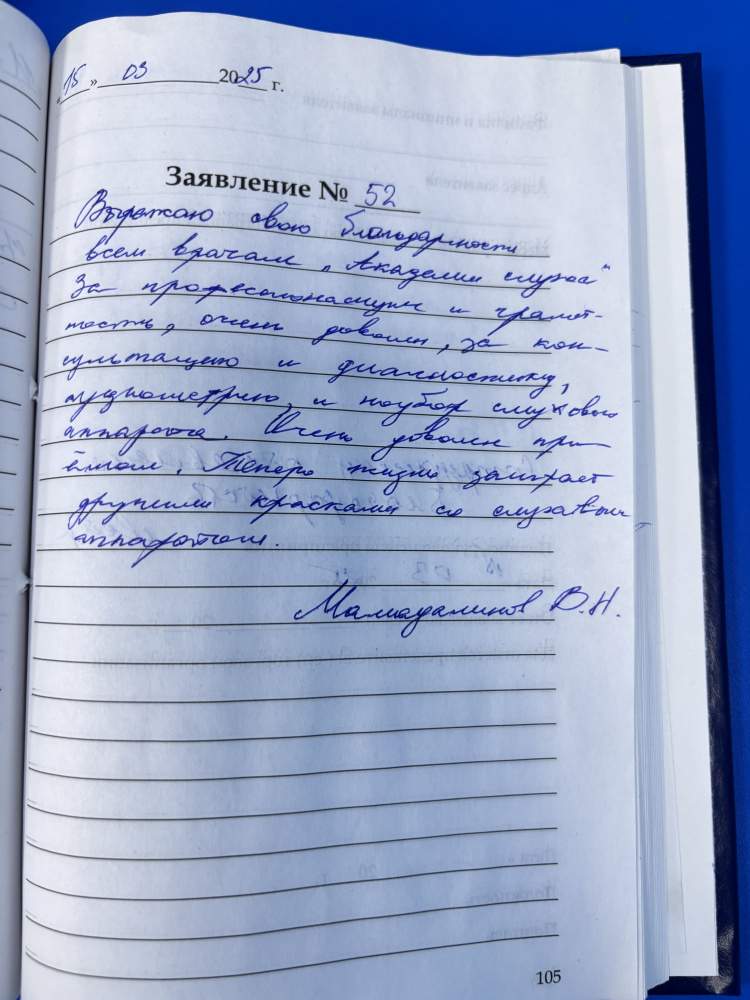 «15» 03 2025 г.
Заявление № 52
Выражаю свою благодарность
всем врачам „Академии слуха"
За професионализм и грамот-
ность, очень доволен, за кон-
сультацию и диагностику,
аудиометрию, и подбор слухового
аппарата. Очень доволен при-
ёмом. Теперь жизнь заиграет
другими красками со слуховым
аппаратом.
Мамадалинов В.Н.
105